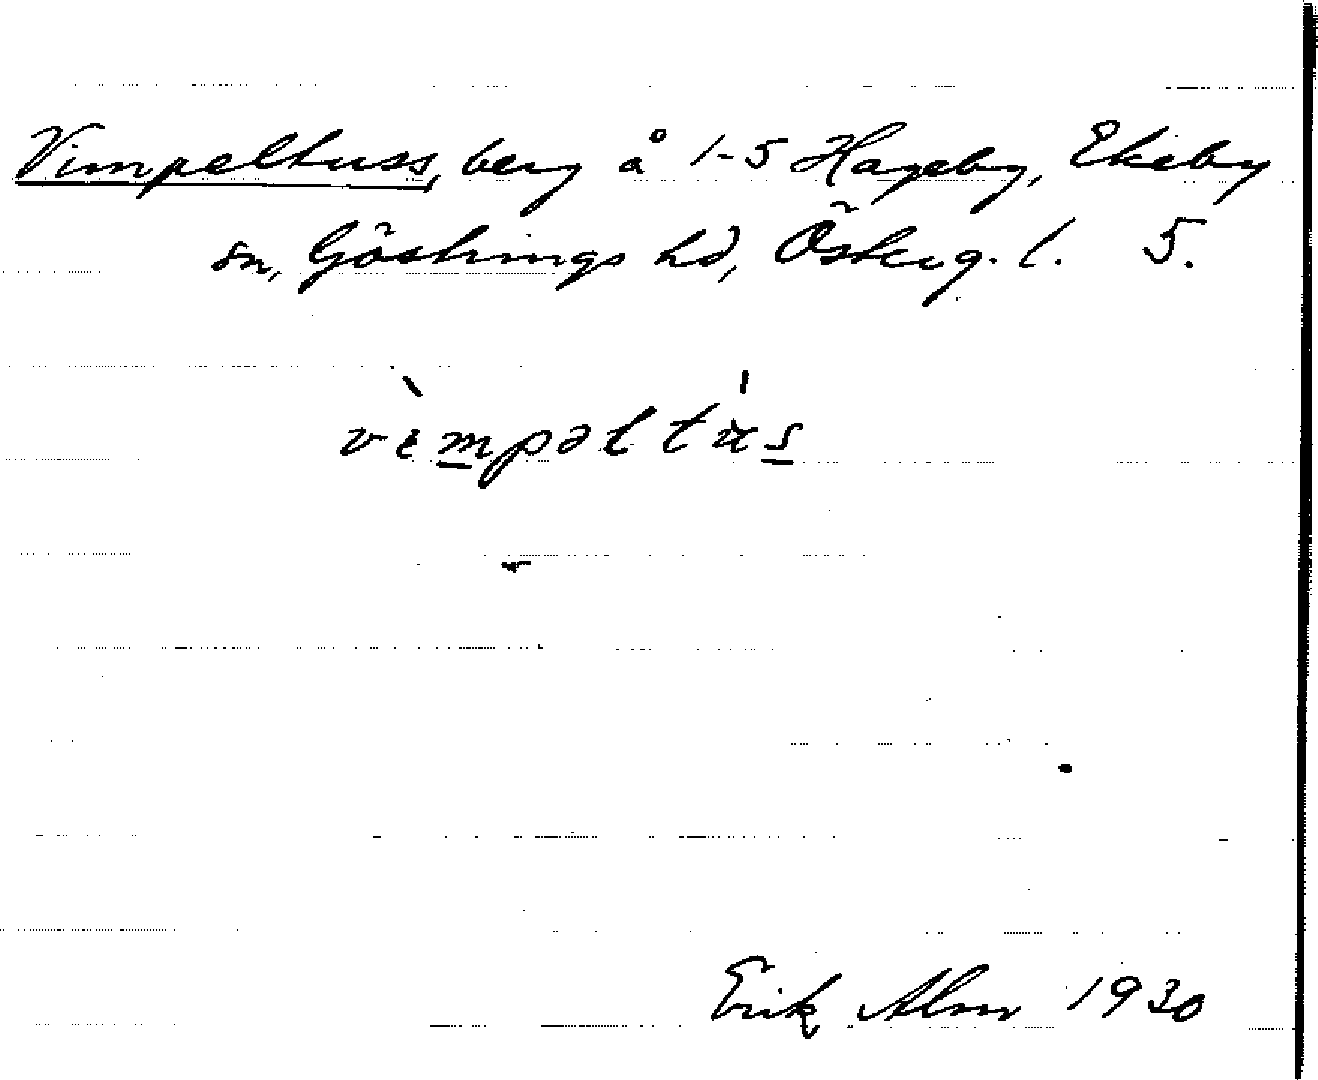 Vimpeltuss, berg å 1-5 Hageby, Ekeby
sn, Göstrings hd, Österg. l. 5.
Erik Alm 1930